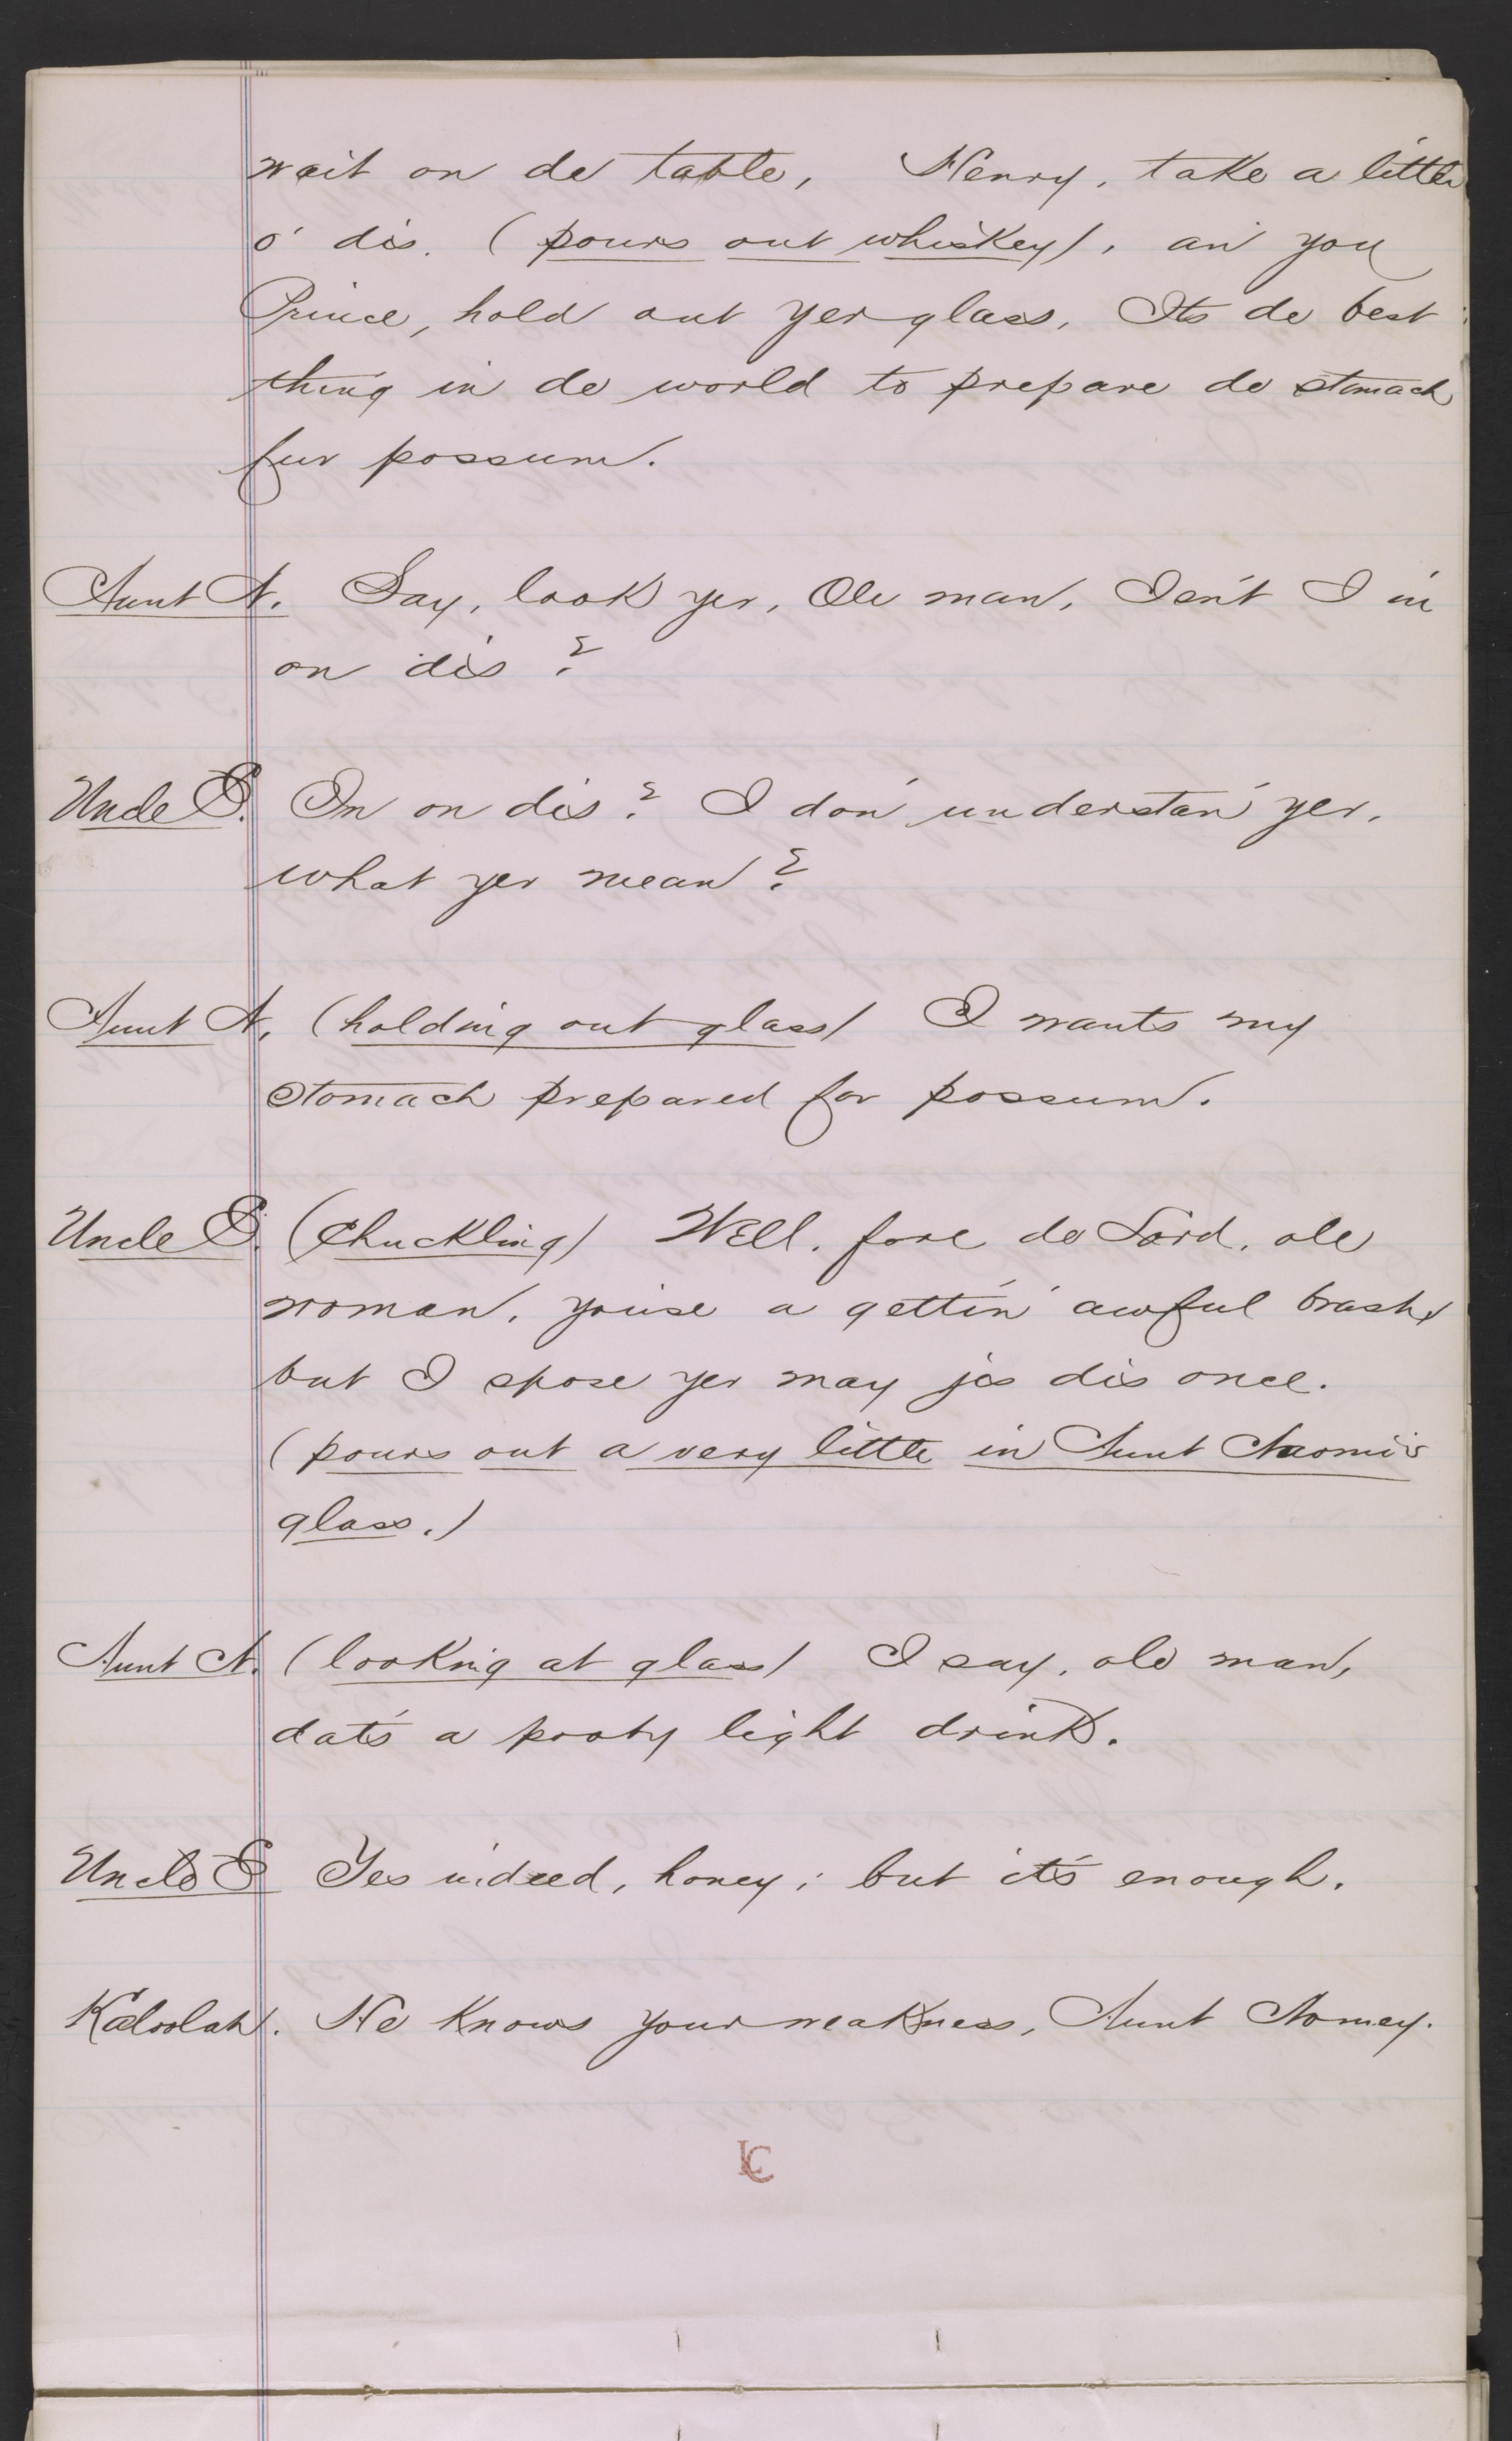 wait on de table, Henry, take a little
o' dis. (pours out whiskey), an' you
Prince, hold out yer glass, Its de best
thing in de world to prepare de stomach
fur possum.
Aunt N. Say, look yer, Ole man, Isn't I in
on dis?
Uncle E. In on dis? I don' understan' yer,
what yer mean?
Aunt N. (holding out glass) I wants my
stomach prepared for possum.
Uncle E. (chuckling) Well, fore de Lord, ole
woman, youse a gettin' awful brash,
but I spose yer may jis dis once.
(pours out a very little in Aunt Naomi's
glass.)
Aunt N. (looking at glass) I say, ole man,
dat's a pooty light drink.
Uncle E Yes indeed, honey; but it's enough.
Kaloolah. He knows your weakness, Aunt Nomey.
LC